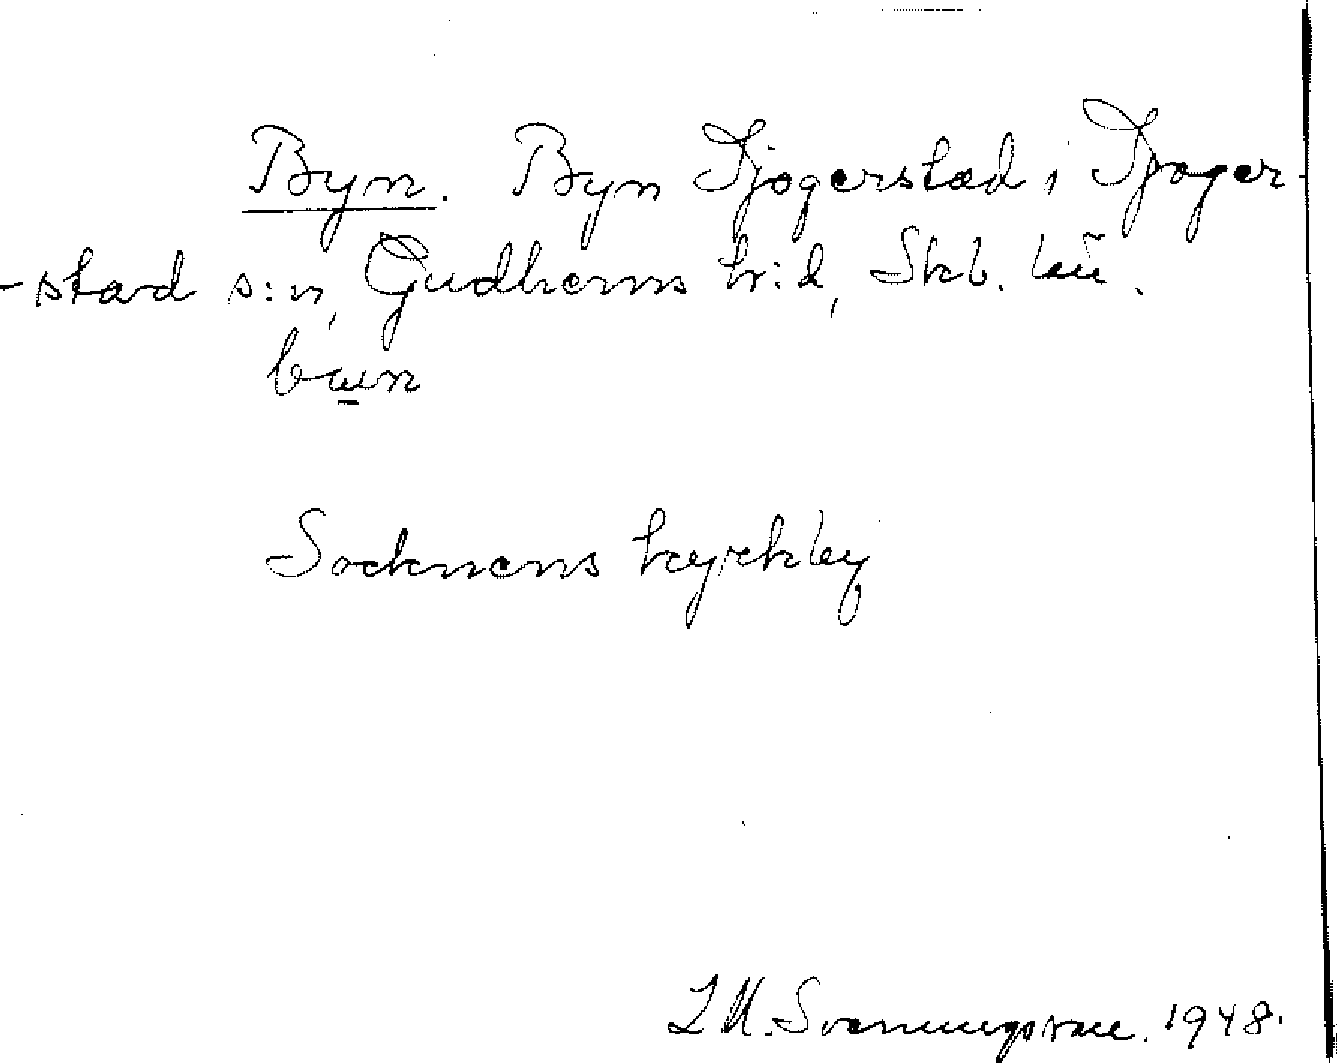 Byn. Byn Tjogerstad i Tjoger-
-stad s:n, Gudhems h:d, Skb. län.
bun
Socknens kyrkby
Svenungsson. 1948.